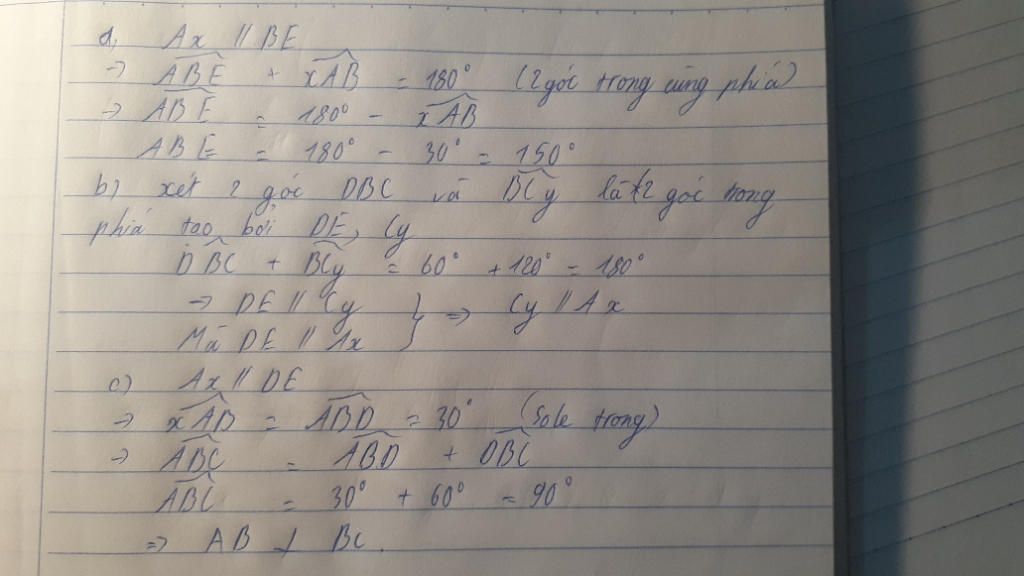 a, Ax // BE
→ ABE + xAB = 180° (2 góc trong cùng phía)
→ ABE = 180° - xAB
ABE = 180° - 30° = 150°
b) xét 2 góc DBC và BCy là 2 góc trong
phía tạo bởi DE, Cy
DBC + BCy = 60° + 120° = 180°
→ DE // Cy } => Cy // Ax
Mà DE // Ax
c) Ax // DE
→ xAB = ABD = 30° (Sole trong)
→ ABC = ABD + DBC
ABC = 30° + 60° = 90°
=> AB ⊥ BC.